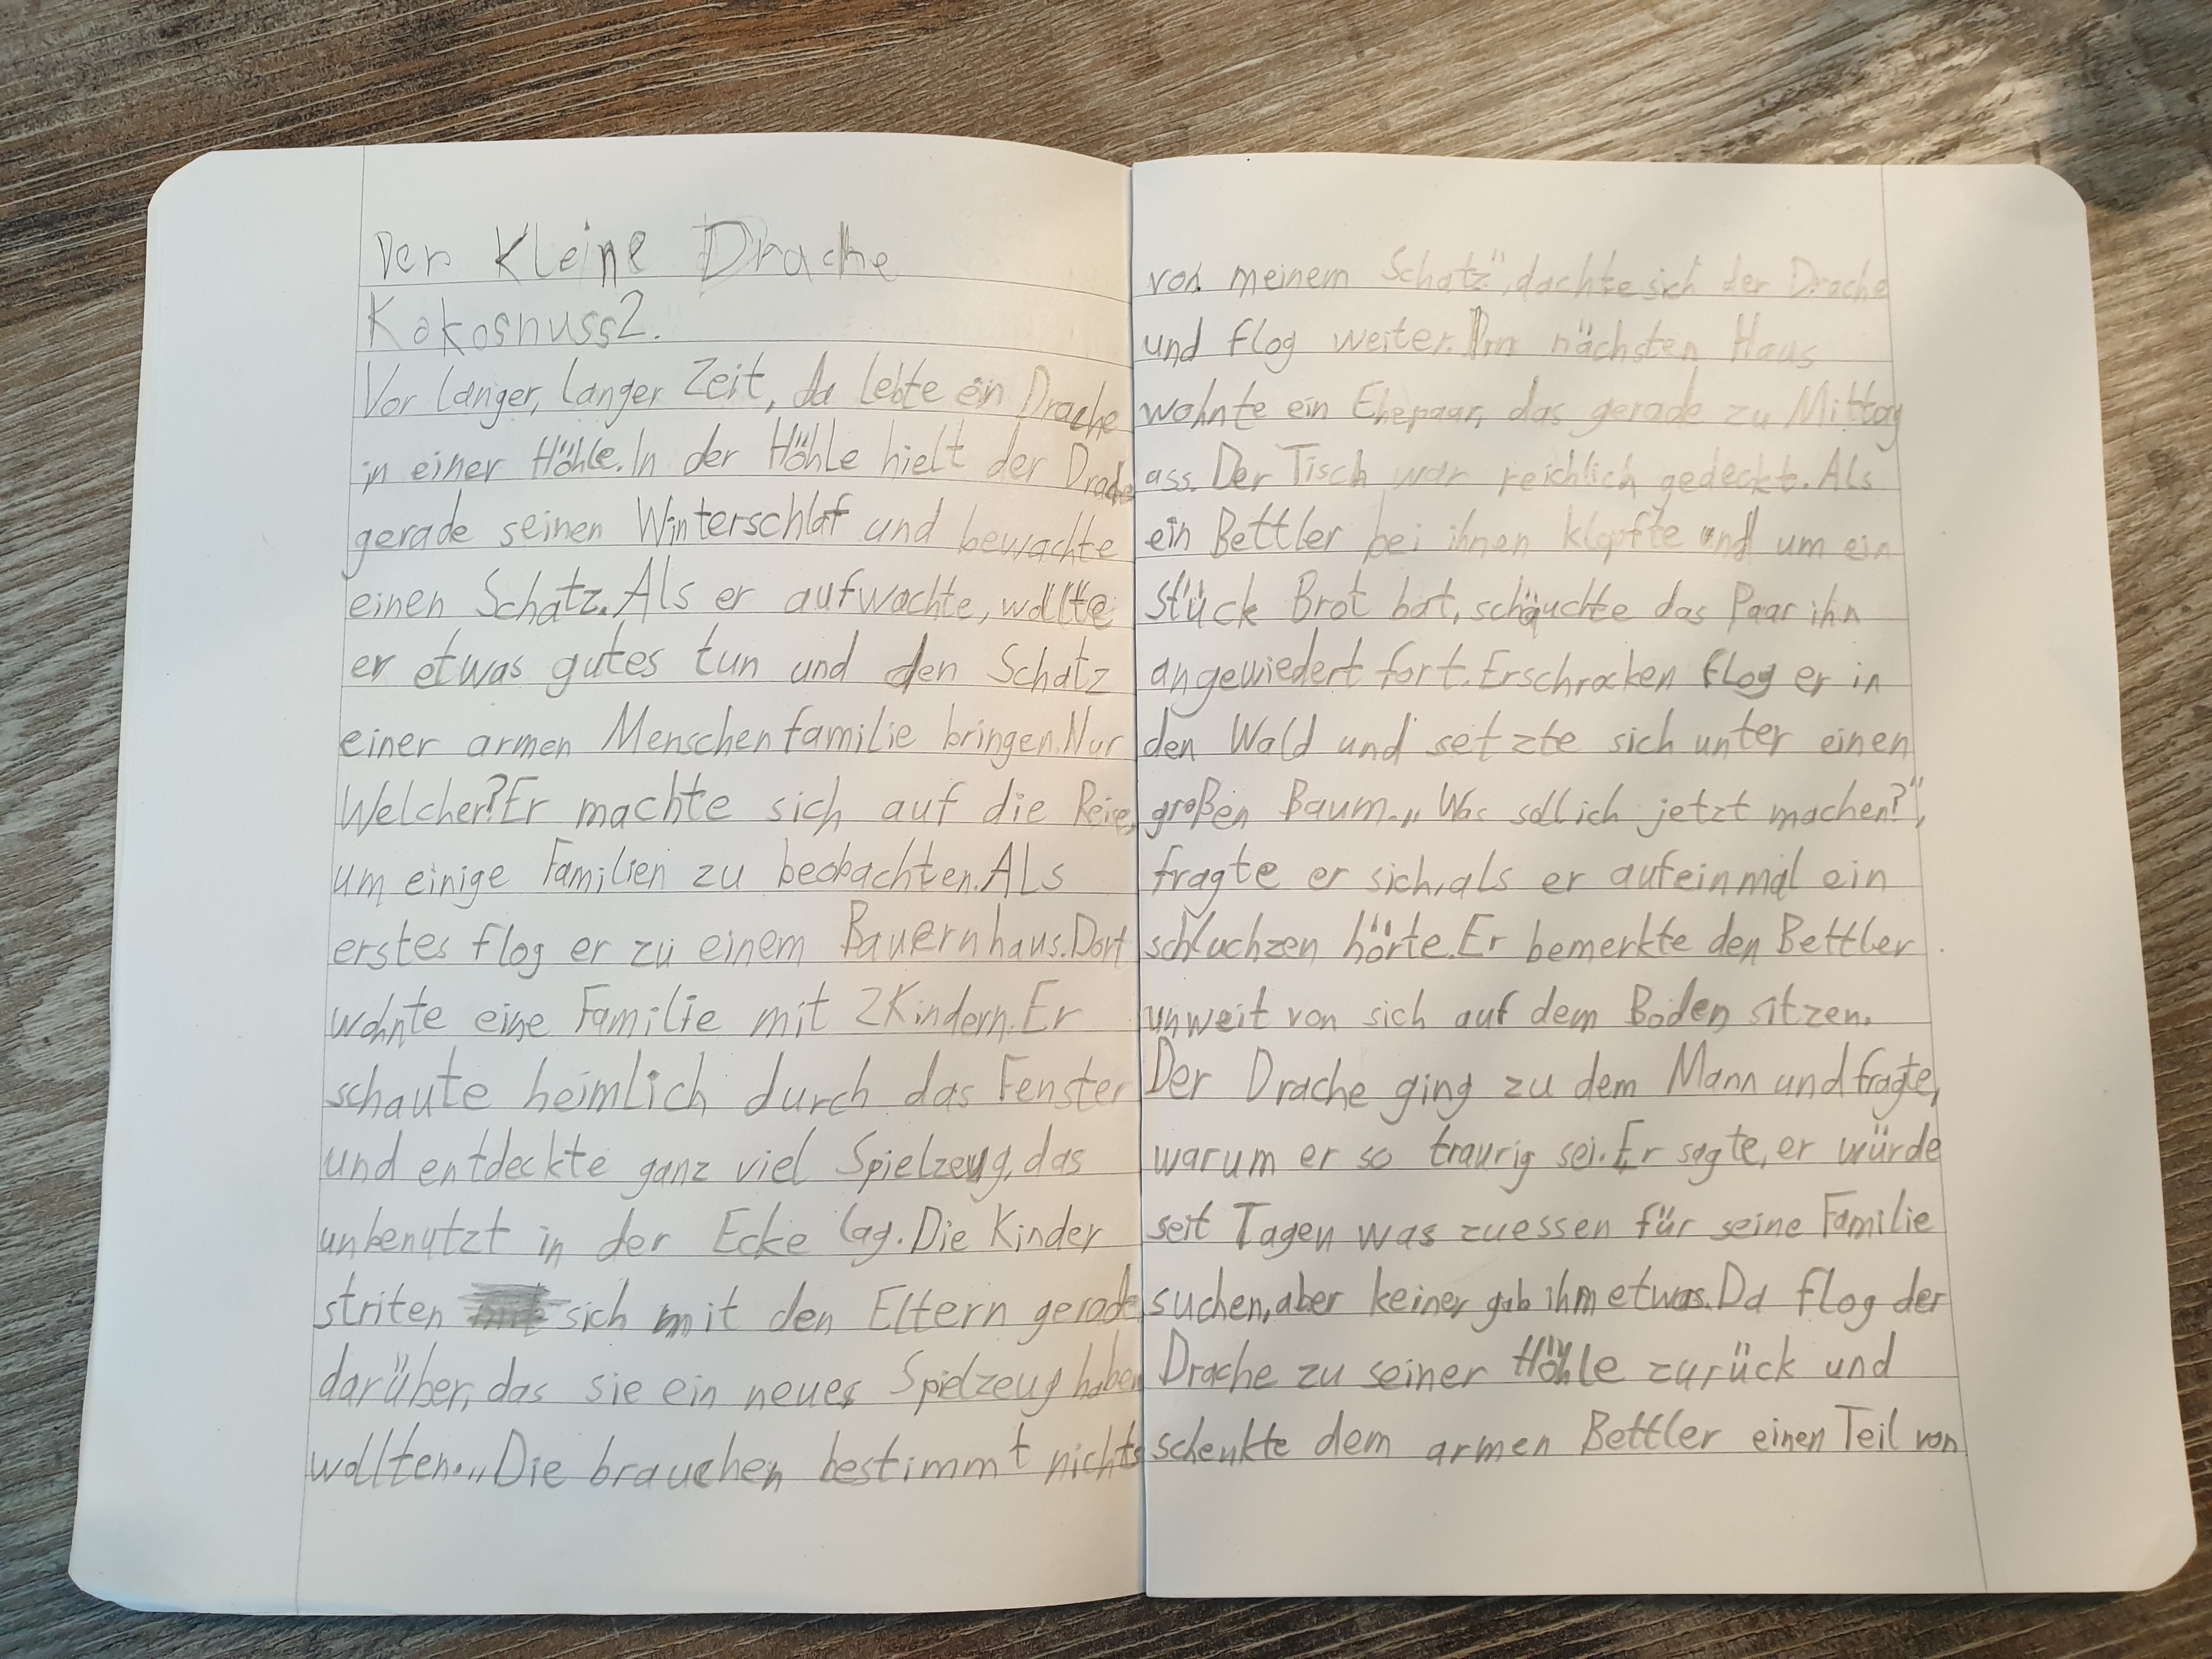 Der Kleine Drache
Kokosnuss2.
Vor langer, langer Zeit, da lebte ein Drache
in einer Höhle. In der Höhle hielt der Drache
gerade seinen Winterschlaf und bewachte
einen Schatz. Als er aufwachte, wollte
er etwas gutes tun und den Schatz
einer armen Menschenfamilie bringen. Nur
Welcher? Er machte sich auf die Reise,
um einige Familien zu beobachten. Als
erstes flog er zu einem Bauernhaus. Dort
wohnte eine Familie mit 2 Kindern. Er
schaute heimlich durch das Fenster
und entdeckte ganz viel Spielzeug, das
unbenutzt in der Ecke lag. Die Kinder
striten sich mit den Eltern gerade
darüber, das sie ein neues Spielzeug haben
wollten. „Die brauchen bestimmt nichts
von meinem Schatz", dachte sich der Drache
und flog weiter. Im nächsten Haus
wohnte ein Ehepaar, das gerade zu Mittag
ass. Der Tisch war reichlich gedeckt. Als
ein Bettler bei ihnen klopfte und um ein
stück Brot bat, schäuchte das Paar ihn
angewiedert fort. Erschrocken flog er in
den Wald und setzte sich unter einen
großen Baum. „Was soll ich jetzt machen?",
fragte er sich, als er aufeinmal ein
schluchzen hörte. Er bemerkte den Bettler
unweit von sich auf dem Boden sitzen.
Der Drache ging zu dem Mann und fragte,
warum er so traurig sei. Er sagte, er würde
seit Tagen was zuessen für seine Familie
suchen, aber keiner gab ihm etwas. Da flog der
Drache zu seiner Höhle zurück und
schenkte dem armen Bettler einen Teil von